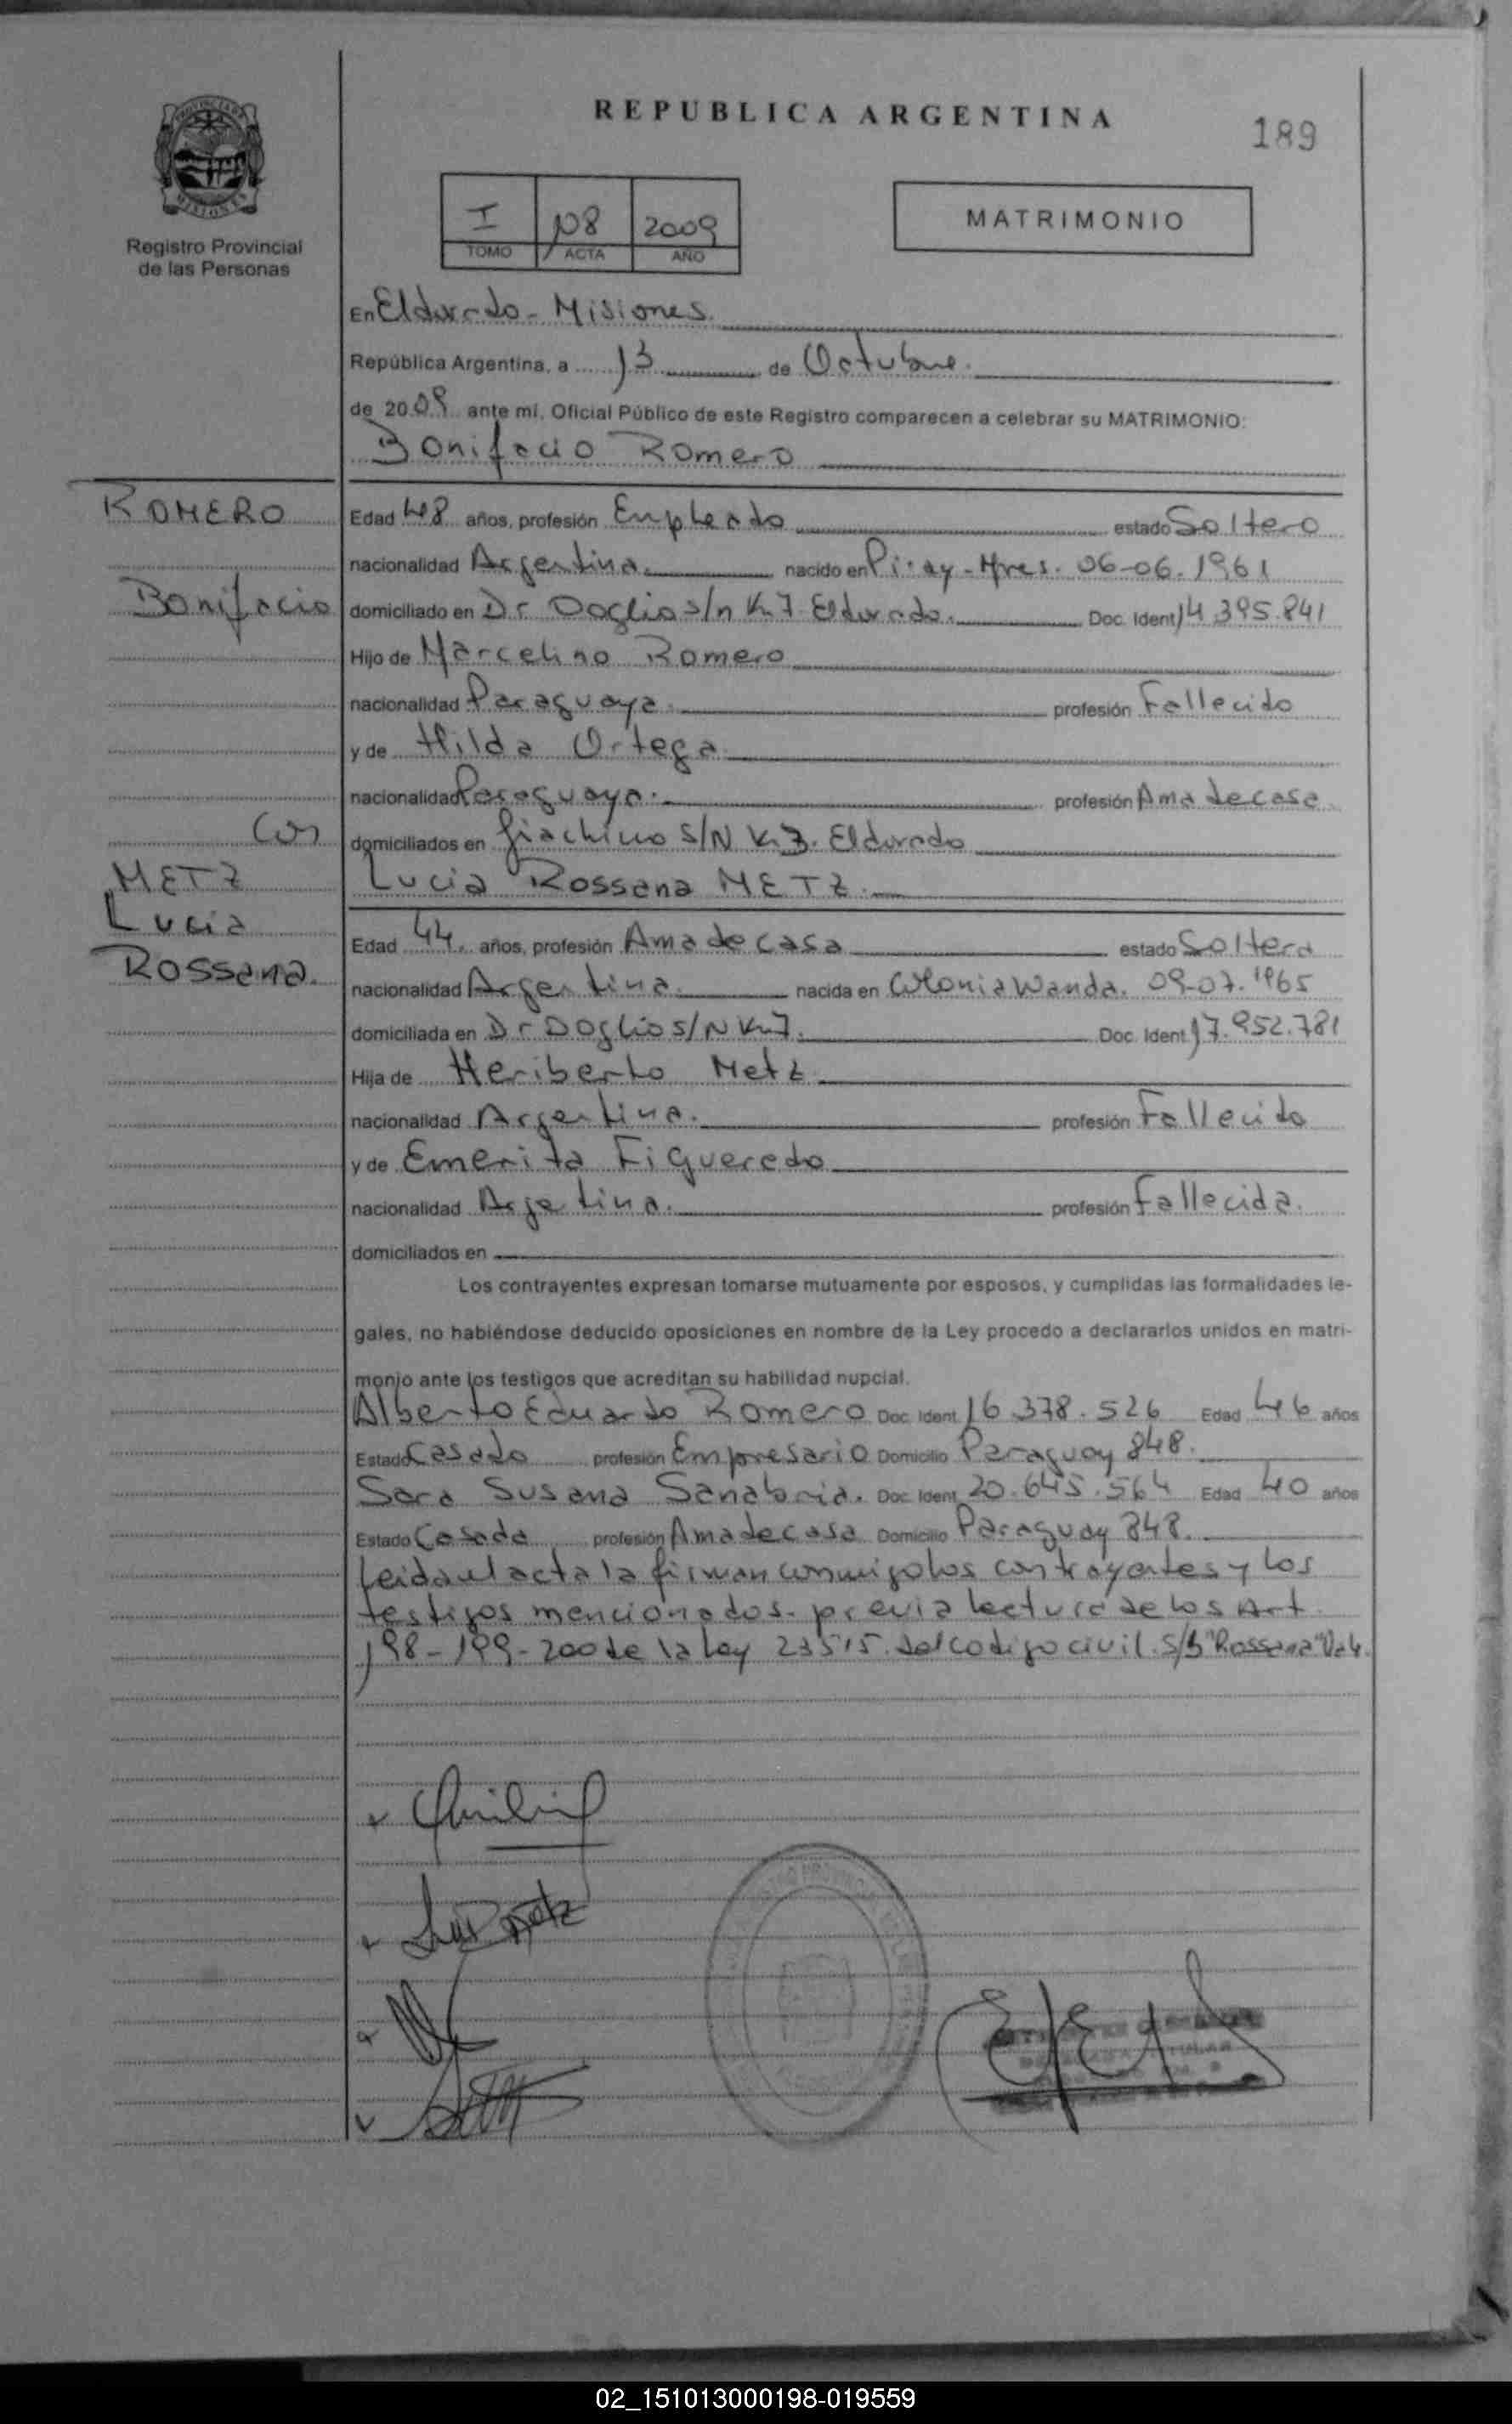 REPUBLICA ARGENTINA
189
PROVINCIA DE
MISIONES
Registro Provincial
de las Personas
I 108 2009
TOMO ACTA AÑO
MATRIMONIO
En Eldorado - Misiones.
República Argentina, a 13 de Octubre.
de 2009 ante mí, Oficial Público de este Registro comparecen a celebrar su MATRIMONIO:
Bonifacio Romero
ROMERO
Bonifacio
Con
METZ
Lucia
Rossana.
Edad 48 años, profesión Empleado estado Soltero
nacionalidad Argentina. nacido en Piray - Mnes. 06-06.1961
domiciliado en Dr Doglio s/n Km 7 Eldorado. Doc. Ident 14.395.841
Hijo de Marcelino Romero
nacionalidad Paraguaya. profesión Fallecido
y de Hilda Ortega
nacionalidad Paraguaya. profesión Ama de casa
domiciliados en Giachino S/N Km 3. Eldorado
Lucia Rossana METZ.
Edad 44. años, profesión Ama de casa estado Soltera
nacionalidad Argentina. nacida en Colonia Wanda. 09-07.1965
domiciliada en Dr Doglio S/N Km 7. Doc. Ident 17.952.781
Hija de Heriberto Metz
nacionalidad Argentina. profesión Fallecido
y de Emerita Figueredo
nacionalidad Argentina. profesión Fallecida.
domiciliados en
Los contrayentes expresan tomarse mutuamente por esposos, y cumplidas las formalidades le-
gales, no habiéndose deducido oposiciones en nombre de la Ley procedo a declararlos unidos en matri-
monio ante los testigos que acreditan su habilidad nupcial.
Alberto Eduardo Romero Doc. Ident 16.378.526 Edad 46 años
Estado Casado profesión Empresario Domicilio Paraguay 848.
Sara Susana Sanabria. Doc. Ident 20.645.564 Edad 40 años
Estado Casada profesión Ama de casa Domicilio Paraguay 848.
Leida el acta la firman conmigo los contrayentes y los
testigos mencionados. previa lectura de los Art.
198-199-200 de la Ley 23515. del codigo civil. S/B "Rossana" Vale.
02_151013000198-019559